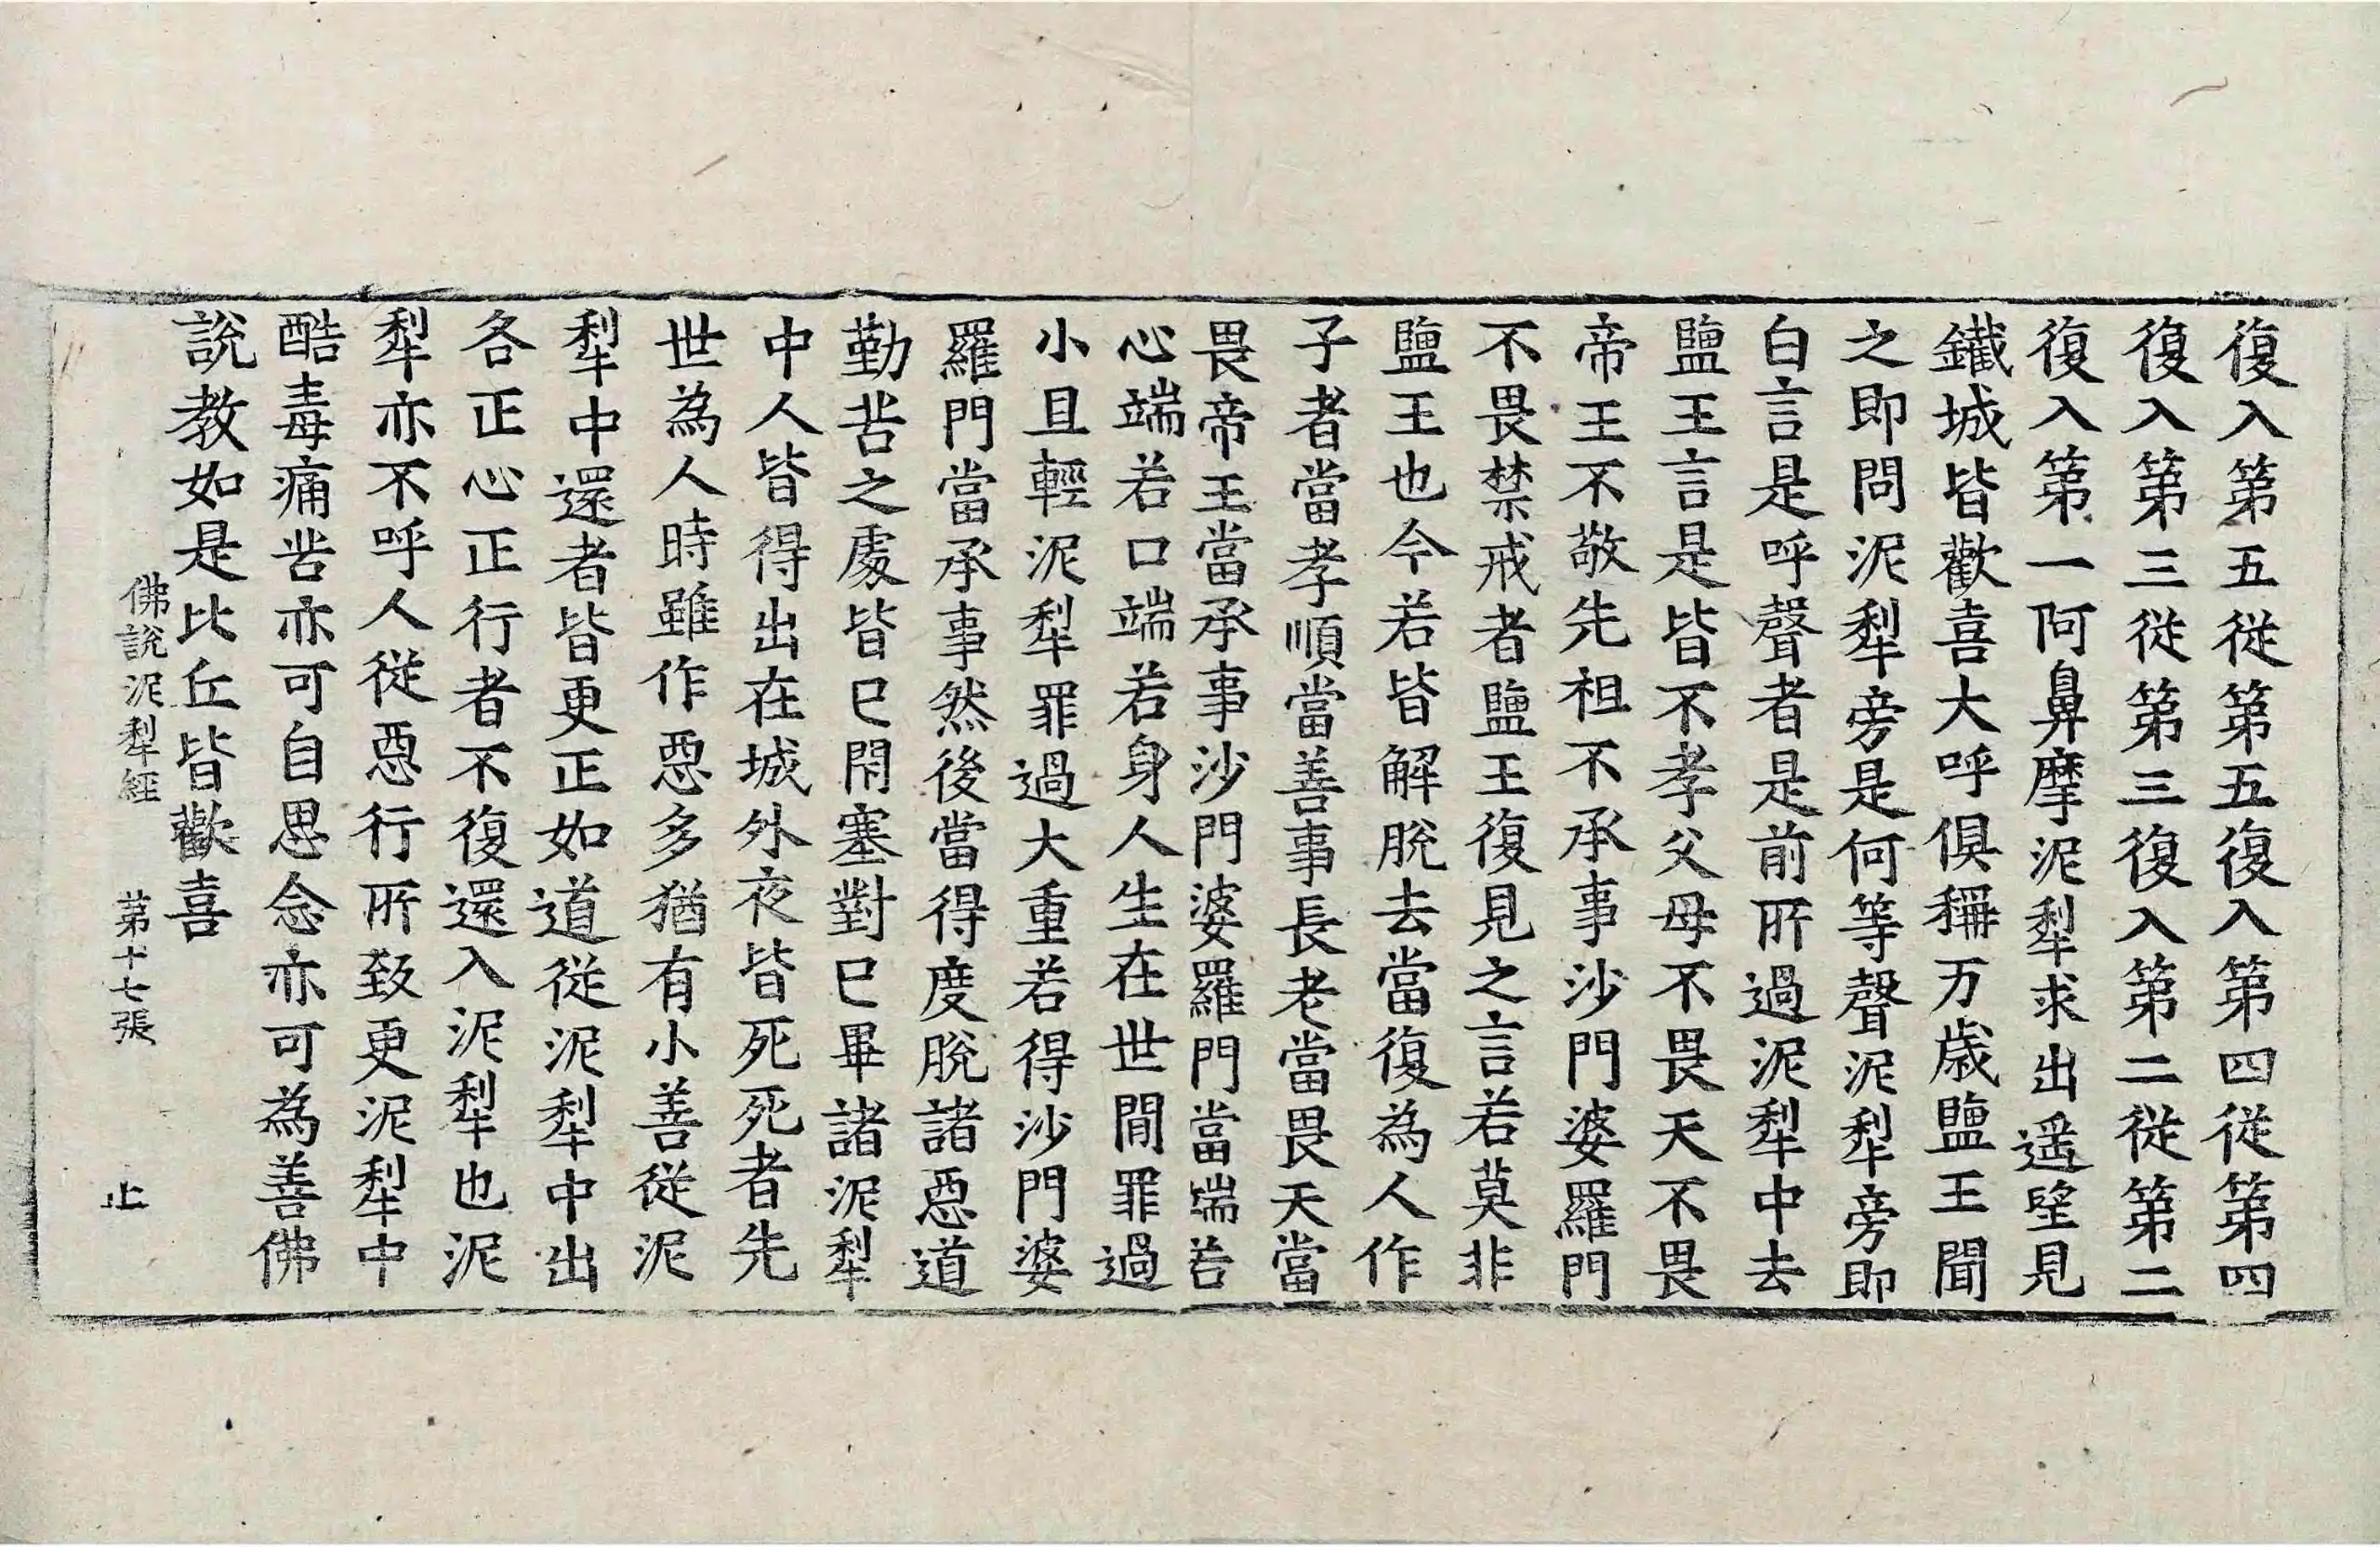 復入第五從第五復入第四從第四
復入第三從第三復入第二從第二
復入第一阿鼻摩泥犁求出遥望見
鐵城皆歡喜大呼俱稱万歲鹽王聞
之即問泥犁旁是何等聲泥犁旁即
白言是呼聲者是前所過泥犁中去
鹽王言是皆不孝父母不畏天不畏
帝王不敬先祖不承事沙門婆羅門
不畏禁戒者鹽王復見之言若莫非
鹽王也今若皆解脫去當復為人作
子者當孝順當善事長老當畏天當
畏帝王當承事沙門婆羅門當端若
心端若口端若身人生在世間罪過
小且輕泥犁罪過大重若得沙門婆
羅門當承事然後當得度脫諸惡道
勤苦之處皆已閇塞對已畢諸泥犁
中人皆得出在城外夜皆死死者先
世為人時雖作惡多猶有小善從泥
犁中還者皆更正如道從泥犁中出
各正心正行者不復還入泥犁也泥
犁亦不呼人從惡行所致更泥犁中
酷毒痛苦亦可自思念亦可為善佛
說教如是比丘皆歡喜
佛說泥犁經 第十七張 止